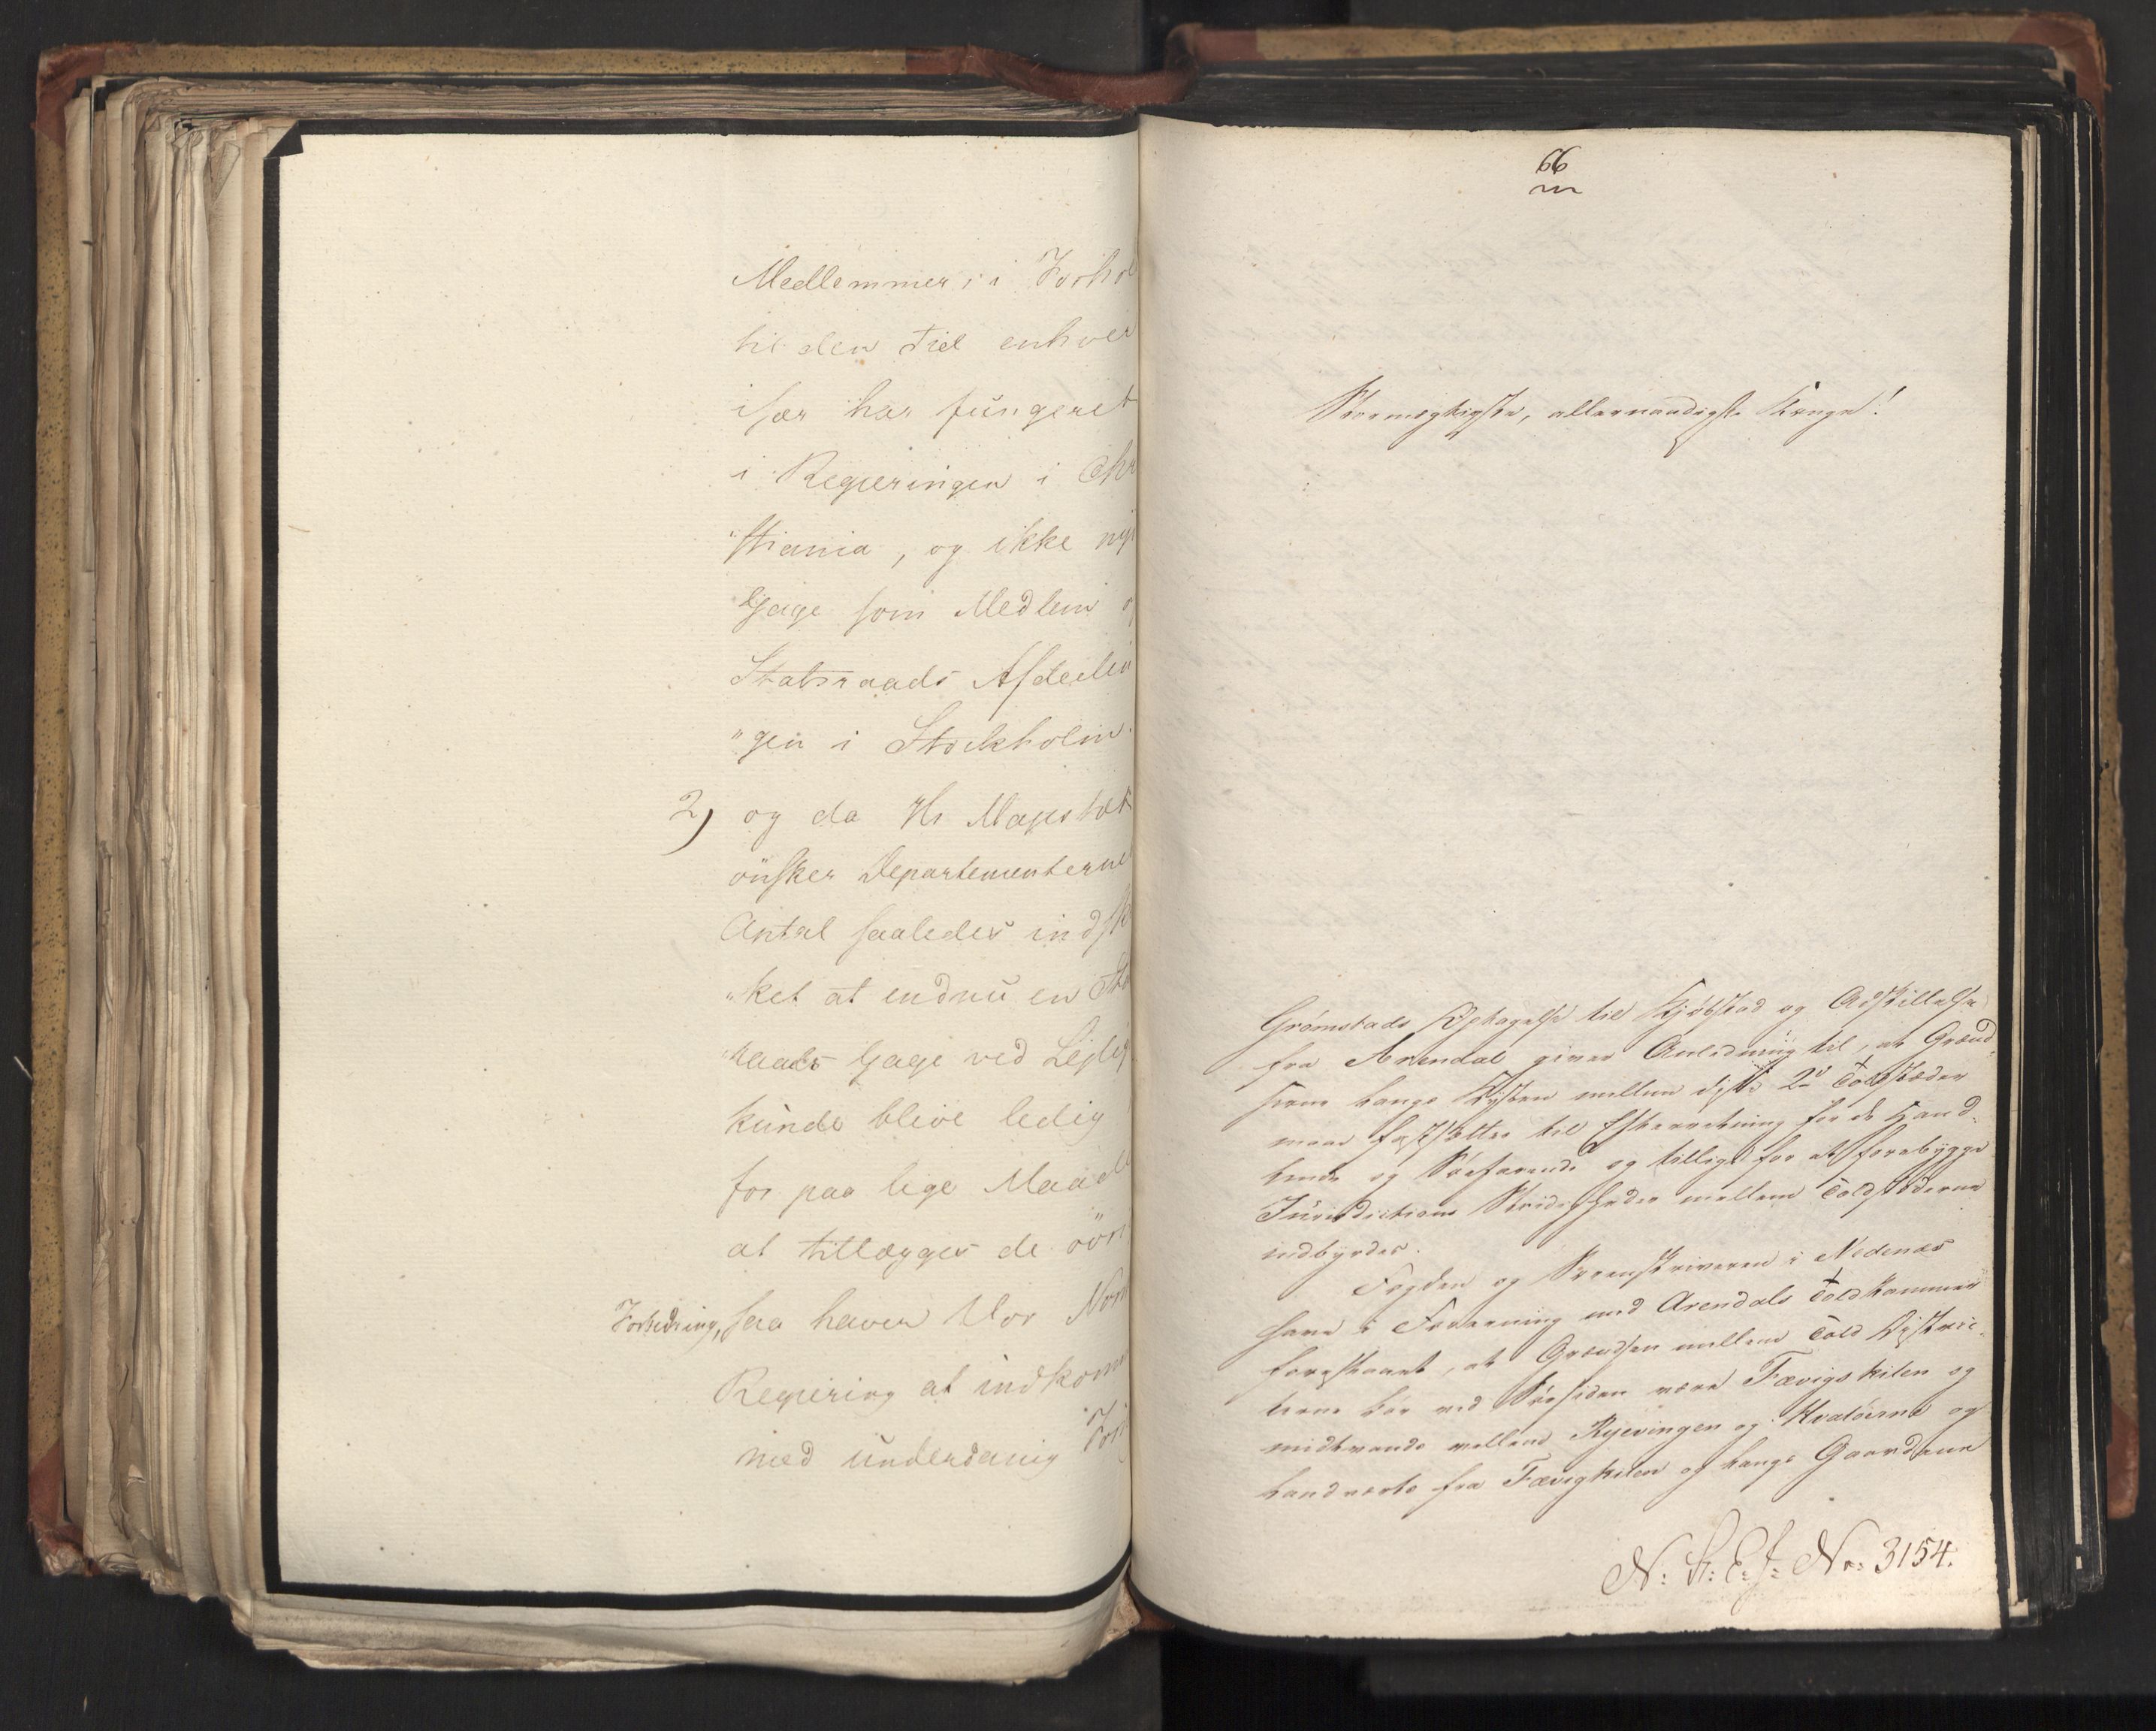 Medlemmer i i Forhol
til den Tid enhver
især har fungeret
i Regieringen i Chr
"stiania, og ikke nyt
Gage som Medlem
Statsraads Afdeelin
"gen i Stockholm.
2) og da Hs Majestæt
önsker Departementerne
Antal saaledes indsk
"ket at endnu en Sta
"raads Gage ved Lejlig
kunde blive ledig
for paa lige Maade
at tillægges de övri
Forhedring, saa haver Vor Nor
Regiering at indkom
med underdanig
66
Stormægtigste, allernaadigste Konge!
Grømstads Optagelse til Kjøbstad og Adskillelse
fra Arendal giver Anledning til, at Grænd-
serne langs Kysten mellem disse 2de Toldstæder
maae fastsættes til Efterretning for de Hand-
lende og Søefarende og tillige for at forebygge
Jurisdictions Stridigheder mellem Toldstæderne
indbyrdes.
Fogden og Sorenskriveren i Nedenæs
have i Forening med Arendals Toldkammer
foreslaaet, at Grændsen mellem Told Distric-
terne bør ved Søesiden være Fævigskilen og
midtvands mellem Ryevingen og Hvaløerne og
landværts fra Fævigkilen og langs Gaardene
N: S: E: J: No: 3154.